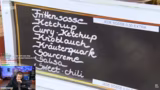 Frittensosse
Ketchup
Curry Ketchup
Knoblauch
Kräuterquark
Sourcreme
Salsa
Sweet chili